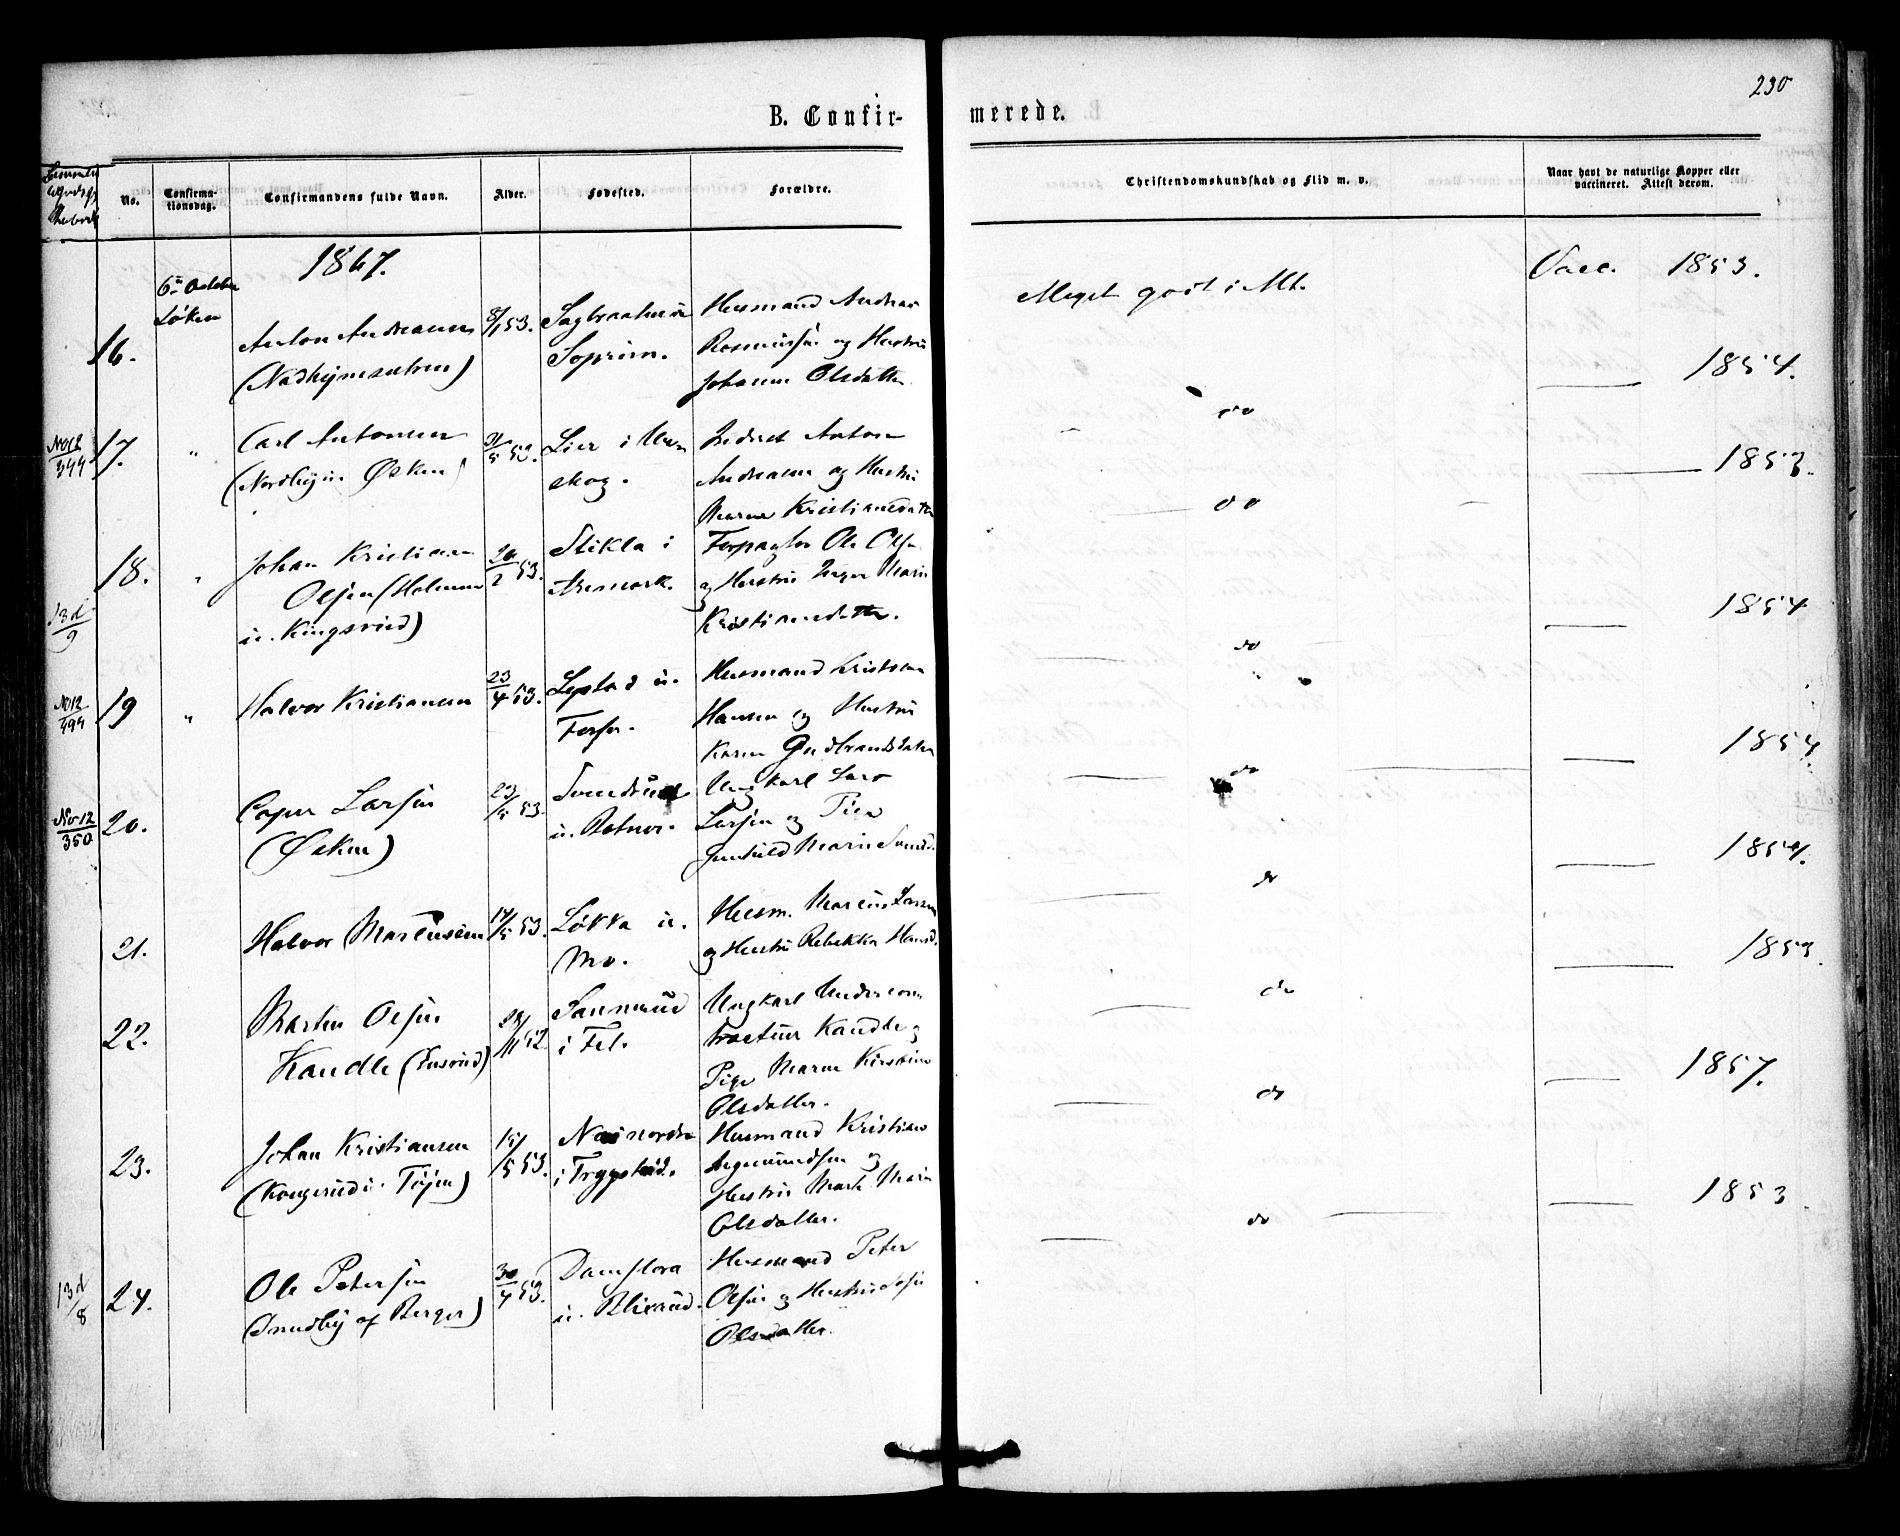 230
B. Confir-
merede.
No.
Confirma-
tionsdag.
Confirmandens fulde Navn.
Alder.
Fødested.
Forældre.
Christendomskundskab og Flid m. v.
Naar havt de naturlige Kopper eller
vaccineret. Attest derom.
1867.
16.
6te October
Løken
Anton Andreasen
8/1 53.
Husmand Andreas
Rasmussen og Hustru
Johanne Olsdatter
Meget godt i Alt.
Vacc. 1853.
No 12
344
17.
"
Carl Antonsen
(Nordbye u. Øsken)
53.
Lier i Urs-
skog.
Inderst Anton
Andreasen og Hustru
Maren Kristiansdatter
do
1854.
13d
9
18.
"
Johan Kristian
Olsen (Holmen
u. Kingsrud)
20/2 53.
Stikla i
Aremark.
Forpagter Ole Olsen
og Hustru Inger Marie
Kristiansdatter.
do
1853.
No 12
494
19
"
Halvor Kristiansen
23/4 53.
Lystad u.
Forfer.
Husmand Kristian
Hansen og Hustru
Karen Gudbrandsdatter
do
1854
No 12
350
20.
Casper Larsen
(Øsken)
23/5 53.
u. Botner.
Ungkarl Lars
Larsen og Pige
Gunhild Marie Svendsd.
do
1854
21.
Halvor Martinsen
14/5 53.
Løkka u.
Mo.
Husm. Larsen
og Hustru Rebekka Hansd.
do
1854.
22.
Martin Olsen
Kandle (Susrud)
52
Sannerud
i Fet.
Ungkarl Undercon-
ducteur Kandle og
Pige Maren Kirstine
Olsdatter.
do
1853.
23.
Johan Kristiansen
(Kongerud u. Tøjen)
15/5 53.
i Trygstad.
Husmand Kristian
Aagmundsen og
Hustru Marthe Marie
Olsdatter.
do
1857.
13d
8
24.
Ole Petersen
(Smedby af Berger)
30/4 53.
Damflora
u. Blixrud.
Husmand Peter
Olsen og Hustru Sofie
Olsdatter.
do
1853